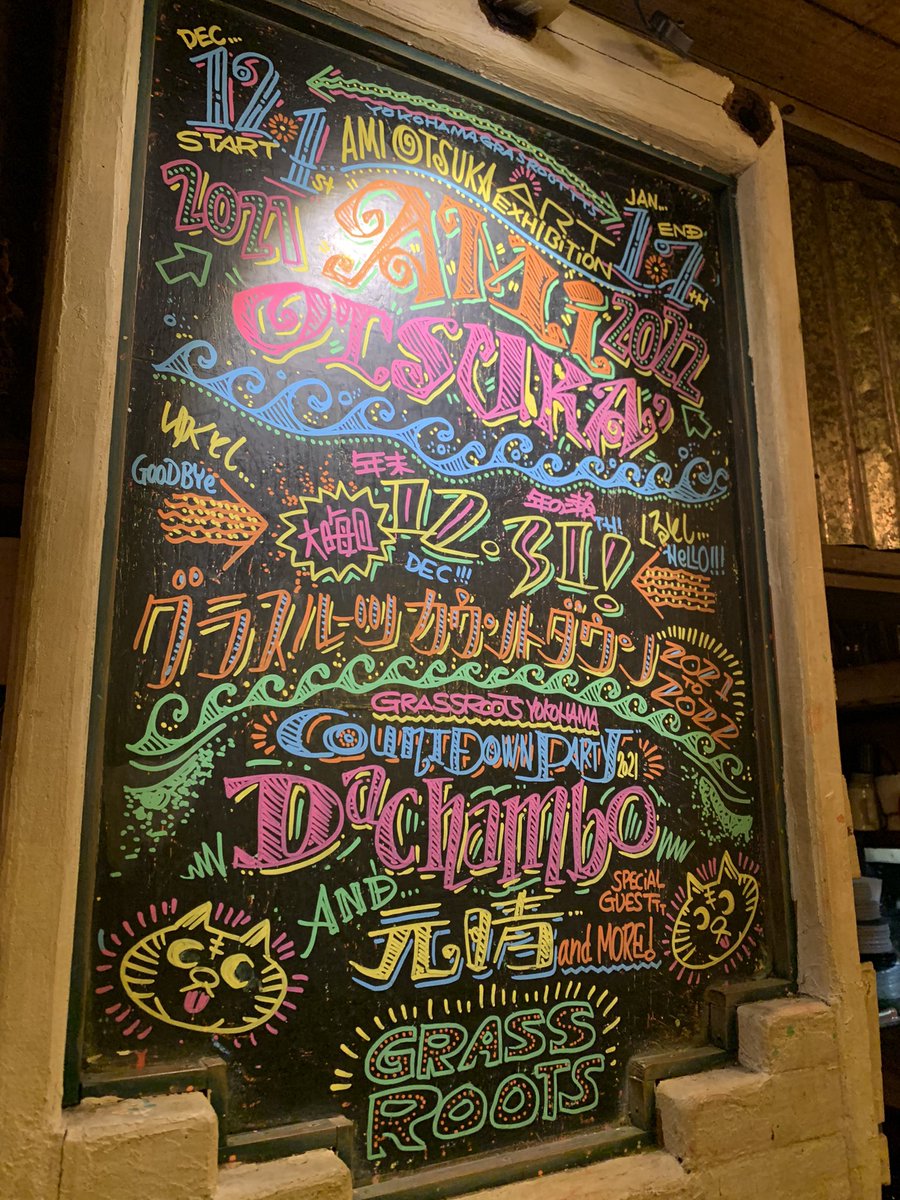 DEC...
12.1ST
START
2021
YOKOHAMA GRASSROOTS
AMI OTSUKA
ART
EXHIBITION
JAN...
END
17TH
2022
AMi
OTSUKA
GOODBYe
年末
大晦日
12.31!
DEC!!!
TH!
HeLLO!!!
グラスルーツ カウントダウン
2021
TO
2022
GRASSROOTS YOKOHAMA
COUNTDOWN PARTY
2021
Dachambo
AND
SPECIAL
GUEST
元晴
and MORE!
GRASS
ROOTS